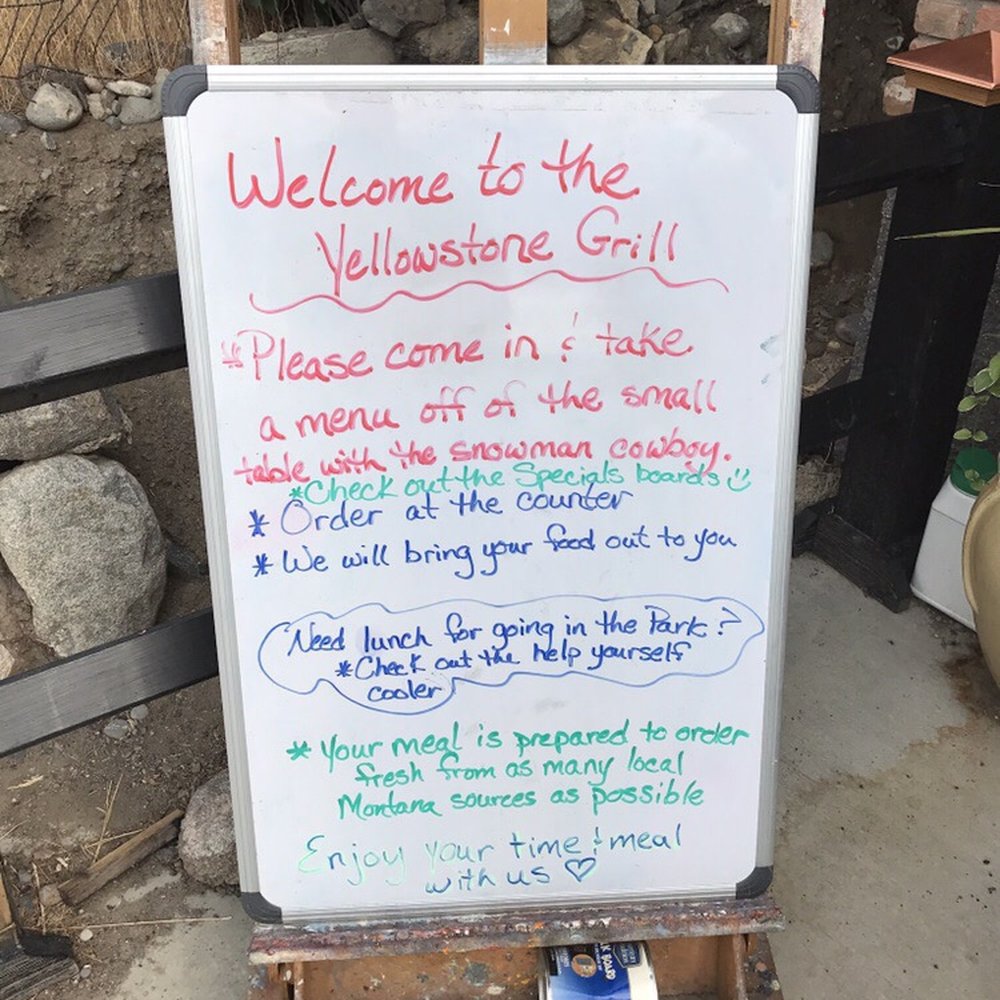 Welcome to the
Yellowstone Grill
*Please come in & take
a menu off of the small
table with the snowman cowboy.
*Check out the Specials boards
* Order at the counter
* We will bring your food out to you
Need lunch for going in the Park?
*Check out the help yourself
cooler
* Your meal is prepared to order
fresh from as many local
Montana sources as possible
Enjoy your time & meal
with us ♡
BOARD